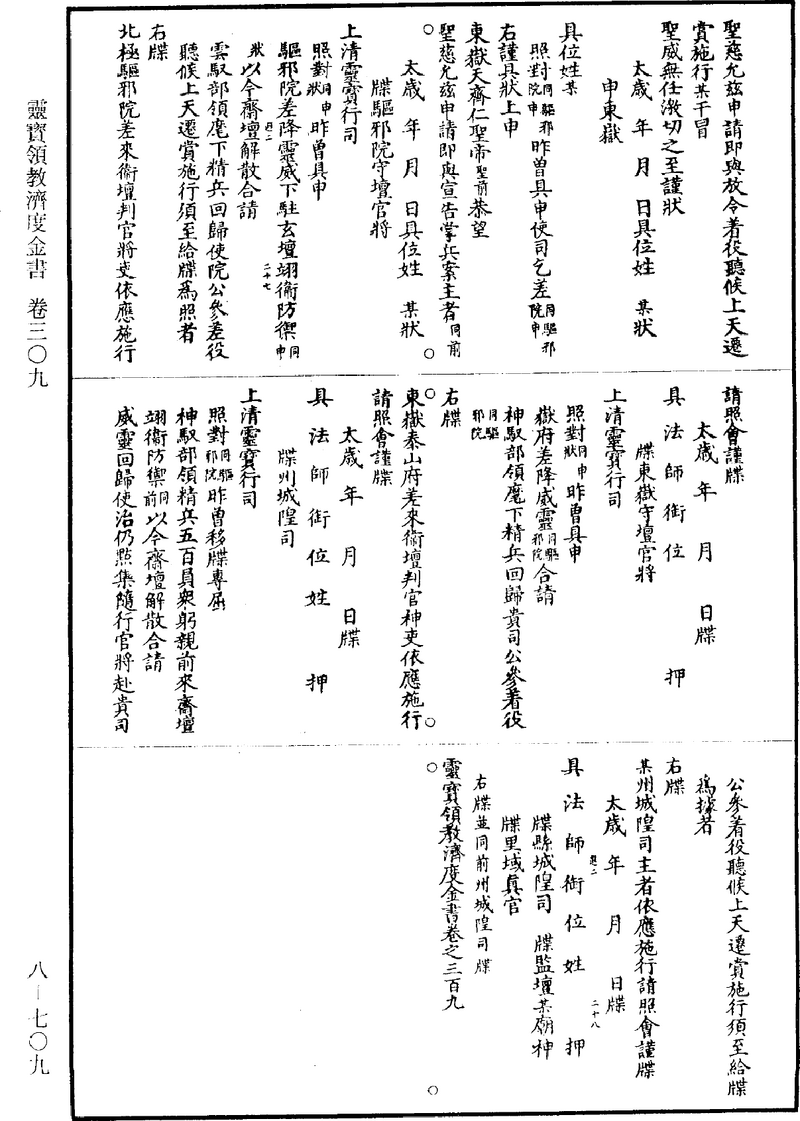 聖慈允兹申請即與放令着役聽候上天遷
賞施行某干冒
聖威無任激切之至謹狀
太歲年月日具位姓某狀
申東嶽
具位姓某
照對同驅邪院申昨曾具申使司乞差同驅邪院申
右謹具狀上申
東嶽天齊仁聖帝聖前恭望
聖慈允兹申請即與宣告掌兵案主者同前
太歲年月日具位姓某狀
牒驅邪院守壇官將
上清靈寶行司
照對同申狀昨曾具申
驅邪院差降靈威下駐玄壇翊衛防禦同申
狀以今齋壇解散合請
雲馭部領麾下精兵回歸使院公參差役
聽候上天遷賞施行須至給牒爲照者
右牒
北極驅邪院差來衛壇判官將吏依應施行
二十七
請照會謹牒
太歲年月日牒
具法師銜位押
牒東嶽守壇官將
上清靈寶行司
照對同申狀昨曾具申
嶽府差降威靈同驅邪院合請
神馭部領麾下精兵回歸貴司公參着役
同驅邪院
右牒
東嶽泰山府差來衛壇判官神吏依應施行
請照會謹牒
太歲年月日牒
具法師銜位姓押
牒州城隍司
上清靈寶行司
照對同驅邪院昨曾移牒專屈
神馭部領精兵五百員衆躬親前來齋壇
翊衛防禦同前以今齋壇解散合請
威靈回歸使治仍點集隨行官將赴貴司
公參着役聽候上天遷賞施行須至給牒
爲據者
右牒
某州城隍司主者依應施行請照會謹牒
太歲年月日牒
二十八
具法師銜位姓押
牒縣城隍司 牒監壇某廟神
牒里域真官
右牒並同前州城隍司牒
靈寶領教濟度金書卷之三百九
靈寶領教濟度金書 卷三〇九
八—七〇九